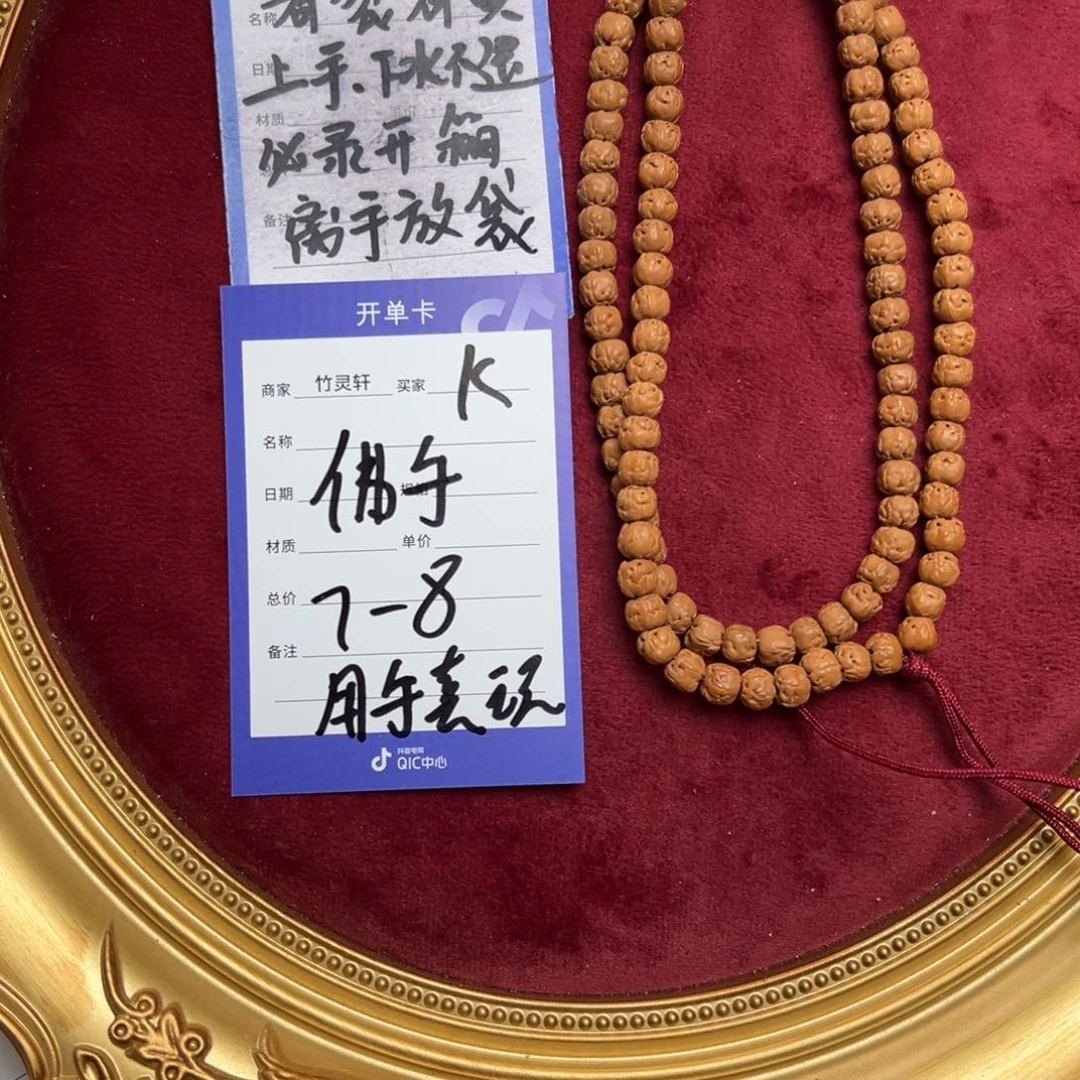 名称
日期 上手、下水不退
材质 必录开箱
备注 离手放袋
开单卡
商家 竹灵轩 买家 K
名称
日期 佛午
材质 单价
总价 7-8
备注
用午盍玩
抖音电商
QIC中心